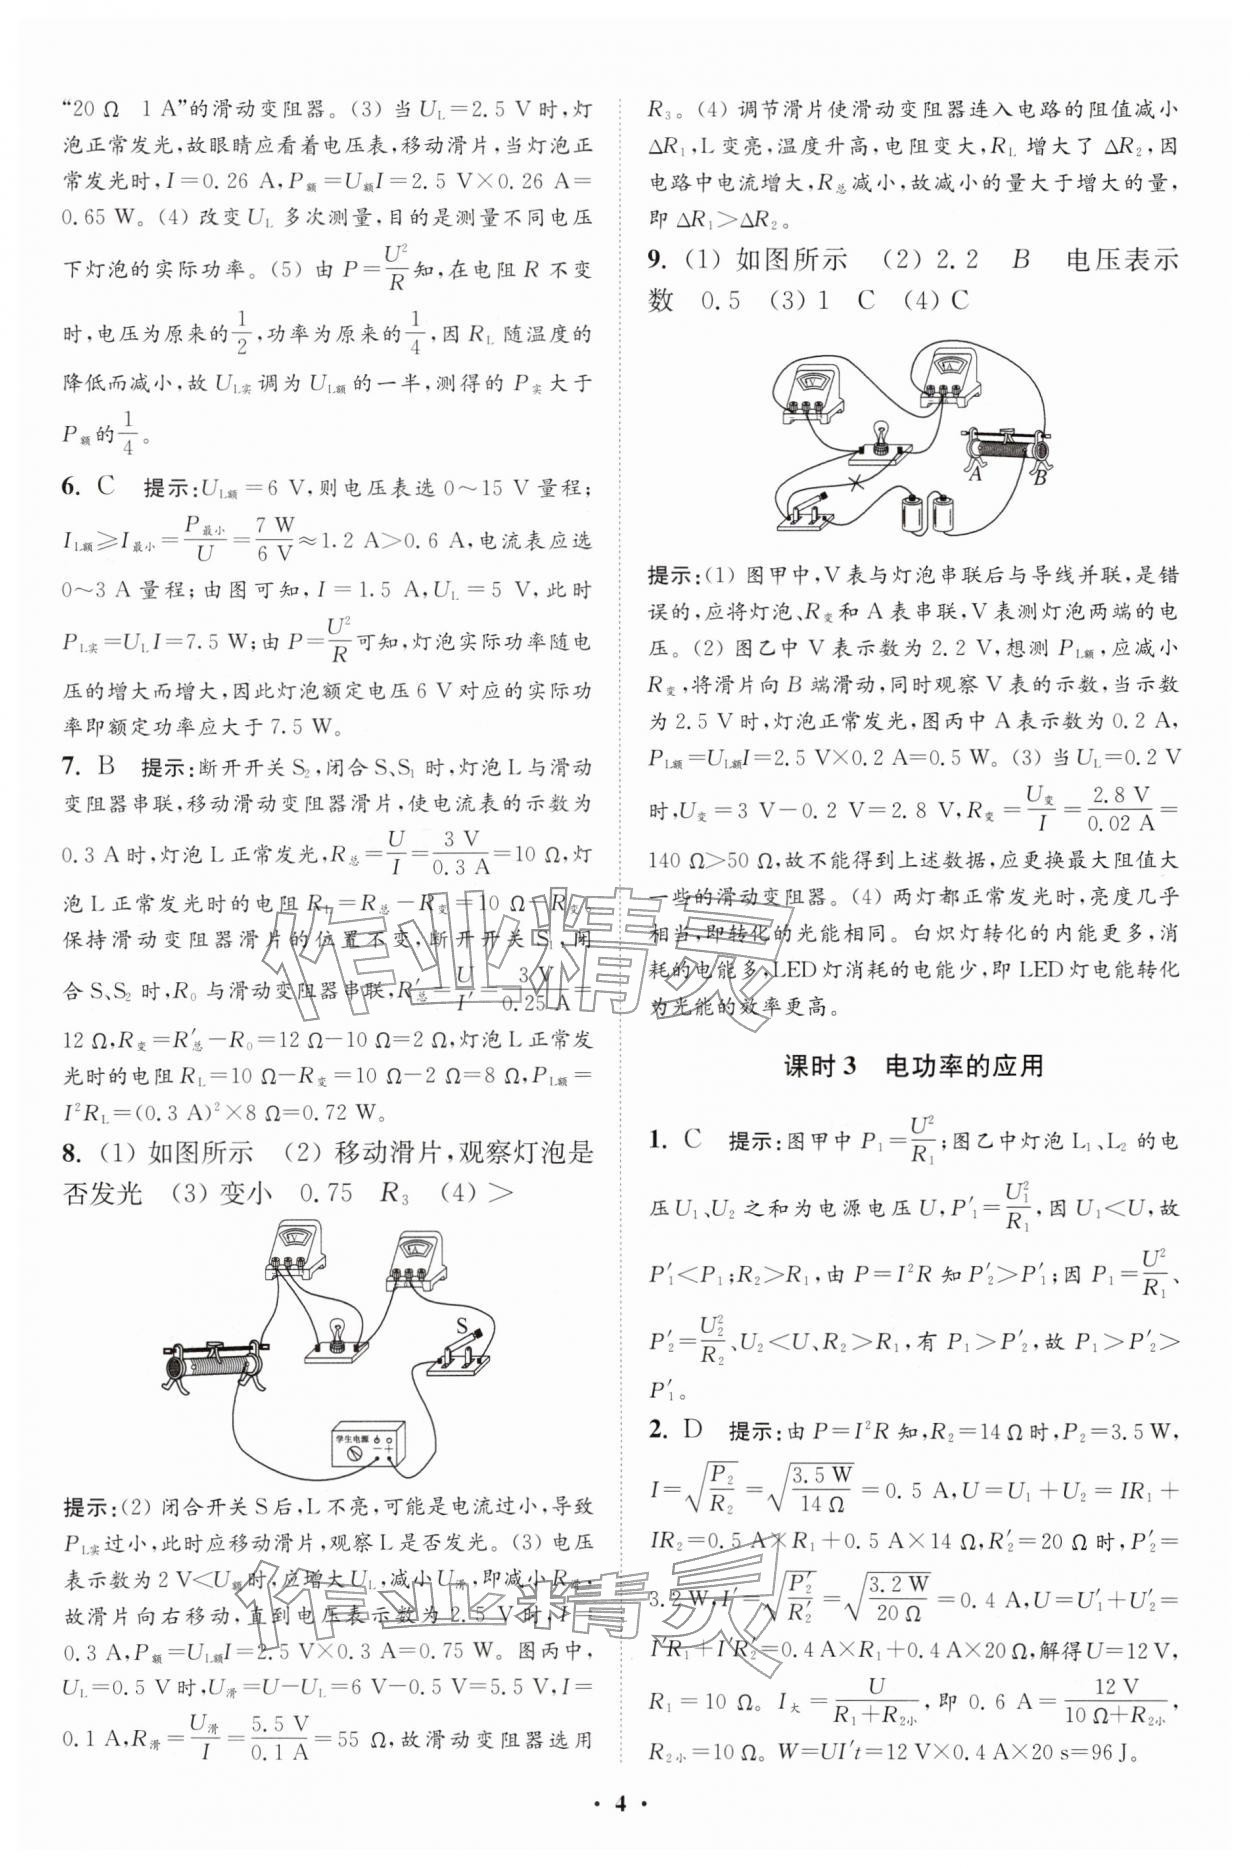 “20 Ω　1 A”的滑动变阻器。(3) 当 U_L＝2.5 V 时,灯
泡正常发光,故眼睛应看着电压表,移动滑片,当灯泡正
常发光时,I＝0.26 A,P额＝U额I＝2.5 V×0.26 A＝
0.65 W。(4) 改变 U_L 多次测量,目的是测量不同电压
下灯泡的实际功率。(5) 由 P＝U²/R 知,在电阻 R 不变
时,电压为原来的1/2,功率为原来的1/4,因 R_L 随温度的
降低而减小,故 U_L实 调为 U_L额 的一半,测得的 P实 大于
P额 的1/4。
6. C　提示:U_L额＝6 V,则电压表选 0～15 V 量程;
I_L额≥I最小＝P最小/U＝7 W/6 V≈1.2 A>0.6 A,电流表应选
0～3 A 量程;由图可知,I＝1.5 A,U_L＝5 V,此时
P_L实＝U_L I＝7.5 W;由 P＝U²/R 可知,灯泡实际功率随电
压的增大而增大,因此灯泡额定电压 6 V 对应的实际功
率即额定功率应大于 7.5 W。
7. B　提示:断开开关 S₂,闭合 S、S₁ 时,灯泡 L 与滑动
变阻器串联,移动滑动变阻器滑片,使电流表的示数为
0.3 A 时,灯泡 L 正常发光,R总＝U/I＝3 V/0.3 A＝10 Ω,灯
泡 L 正常发光时的电阻 R_L＝R总－R变＝10 Ω－R变。
保持滑动变阻器滑片的位置不变,断开开关 S₁,闭
合 S、S₂ 时,R₀ 与滑动变阻器串联,R′总＝U/I′＝3 V/0.25 A＝
12 Ω,R变＝R′总－R₀＝12 Ω－10 Ω＝2 Ω,灯泡 L 正常发
光时的电阻 R_L＝10 Ω－R变＝10 Ω－2 Ω＝8 Ω,P_L额＝
I²R_L＝(0.3 A)²×8 Ω＝0.72 W。
8. (1) 如图所示　(2) 移动滑片,观察灯泡是
否发光　(3) 变小　0.75　R₃　(4) >
V
A
S
学生电源
提示:(2) 闭合开关 S 后,L 不亮,可能是电流过小,导致
P_L实 过小,此时应移动滑片,观察 L 是否发光。(3) 电压
表示数为 2 V<U额 时,应增大 U_L,减小 U滑,即减小 R滑,
故滑片向右移动,直到电压表示数为 2.5 V 时,I＝
0.3 A,P额＝U_L额I＝2.5 V×0.3 A＝0.75 W。图丙中,
U_L＝0.5 V 时,U滑＝U－U_L＝6 V－0.5 V＝5.5 V,I＝
0.1 A,R滑＝U滑/I＝5.5 V/0.1 A＝55 Ω,故滑动变阻器选用
R₃。(4) 调节滑片使滑动变阻器连入电路的阻值减小
ΔR₁,L 变亮,温度升高,电阻变大,R_L 增大了 ΔR₂,因
电路中电流增大,R总 减小,故减小的量大于增大的量,
即 ΔR₁>ΔR₂。
9. (1) 如图所示　(2) 2.2　B　电压表示
数　0.5　(3) 1　C　(4) C
A
B
提示:(1) 图甲中,V 表与灯泡串联后与导线并联,是错
误的,应将灯泡、R变 和 A 表串联,V 表测灯泡两端的电
压。(2) 图乙中 V 表示数为 2.2 V,想测 P_L额,应减小
R变,将滑片向 B 端滑动,同时观察 V 表的示数,当示数
为 2.5 V 时,灯泡正常发光,图丙中 A 表示数为 0.2 A,
P_L额＝U_L额I＝2.5 V×0.2 A＝0.5 W。(3) 当 U_L＝0.2 V
时,U变＝3 V－0.2 V＝2.8 V,R变＝U变/I＝2.8 V/0.02 A＝
140 Ω>50 Ω,故不能得到上述数据,应更换最大阻值大
一些的滑动变阻器。(4) 两灯都正常发光时,亮度几乎
相当,即转化的光能相同。白炽灯转化的内能更多,消
耗的电能多,LED 灯消耗的电能少,即 LED 灯电能转化
为光能的效率更高。
课时 3　电功率的应用
1. C　提示:图甲中 P₁＝U²/R₁;图乙中灯泡 L₁、L₂ 的电
压 U₁、U₂ 之和为电源电压 U,P′₁＝U₁²/R₁,因 U₁<U,故
P′₁<P₁;R₂>R₁,由 P＝I²R 知 P′₂>P′₁;因 P₁＝U²/R₁、
P′₂＝U₂²/R₂、U₂<U、R₂>R₁,有 P₁>P′₂,故 P₁>P′₂>
P′₁。
2. D　提示:由 P＝I²R 知,R₂＝14 Ω 时,P₂＝3.5 W,
I＝√(P₂/R₂)＝√(3.5 W/14 Ω)＝0.5 A,U＝U₁＋U₂＝IR₁＋
IR₂＝0.5 A×R₁＋0.5 A×14 Ω,R′₂＝20 Ω 时,P′₂＝
3.2 W,I′＝√(P′₂/R′₂)＝√(3.2 W/20 Ω)＝0.4 A,U＝U′₁＋U′₂＝
I′R₁＋I′R′₂＝0.4 A×R₁＋0.4 A×20 Ω,解得 U＝12 V,
R₁＝10 Ω。I大＝U/(R₁＋R₂小),即 0.6 A＝12 V/(10 Ω＋R₂小),
R₂小＝10 Ω。W＝UI′t＝12 V×0.4 A×20 s＝96 J。
作业精灵
作业精灵
· 4 ·